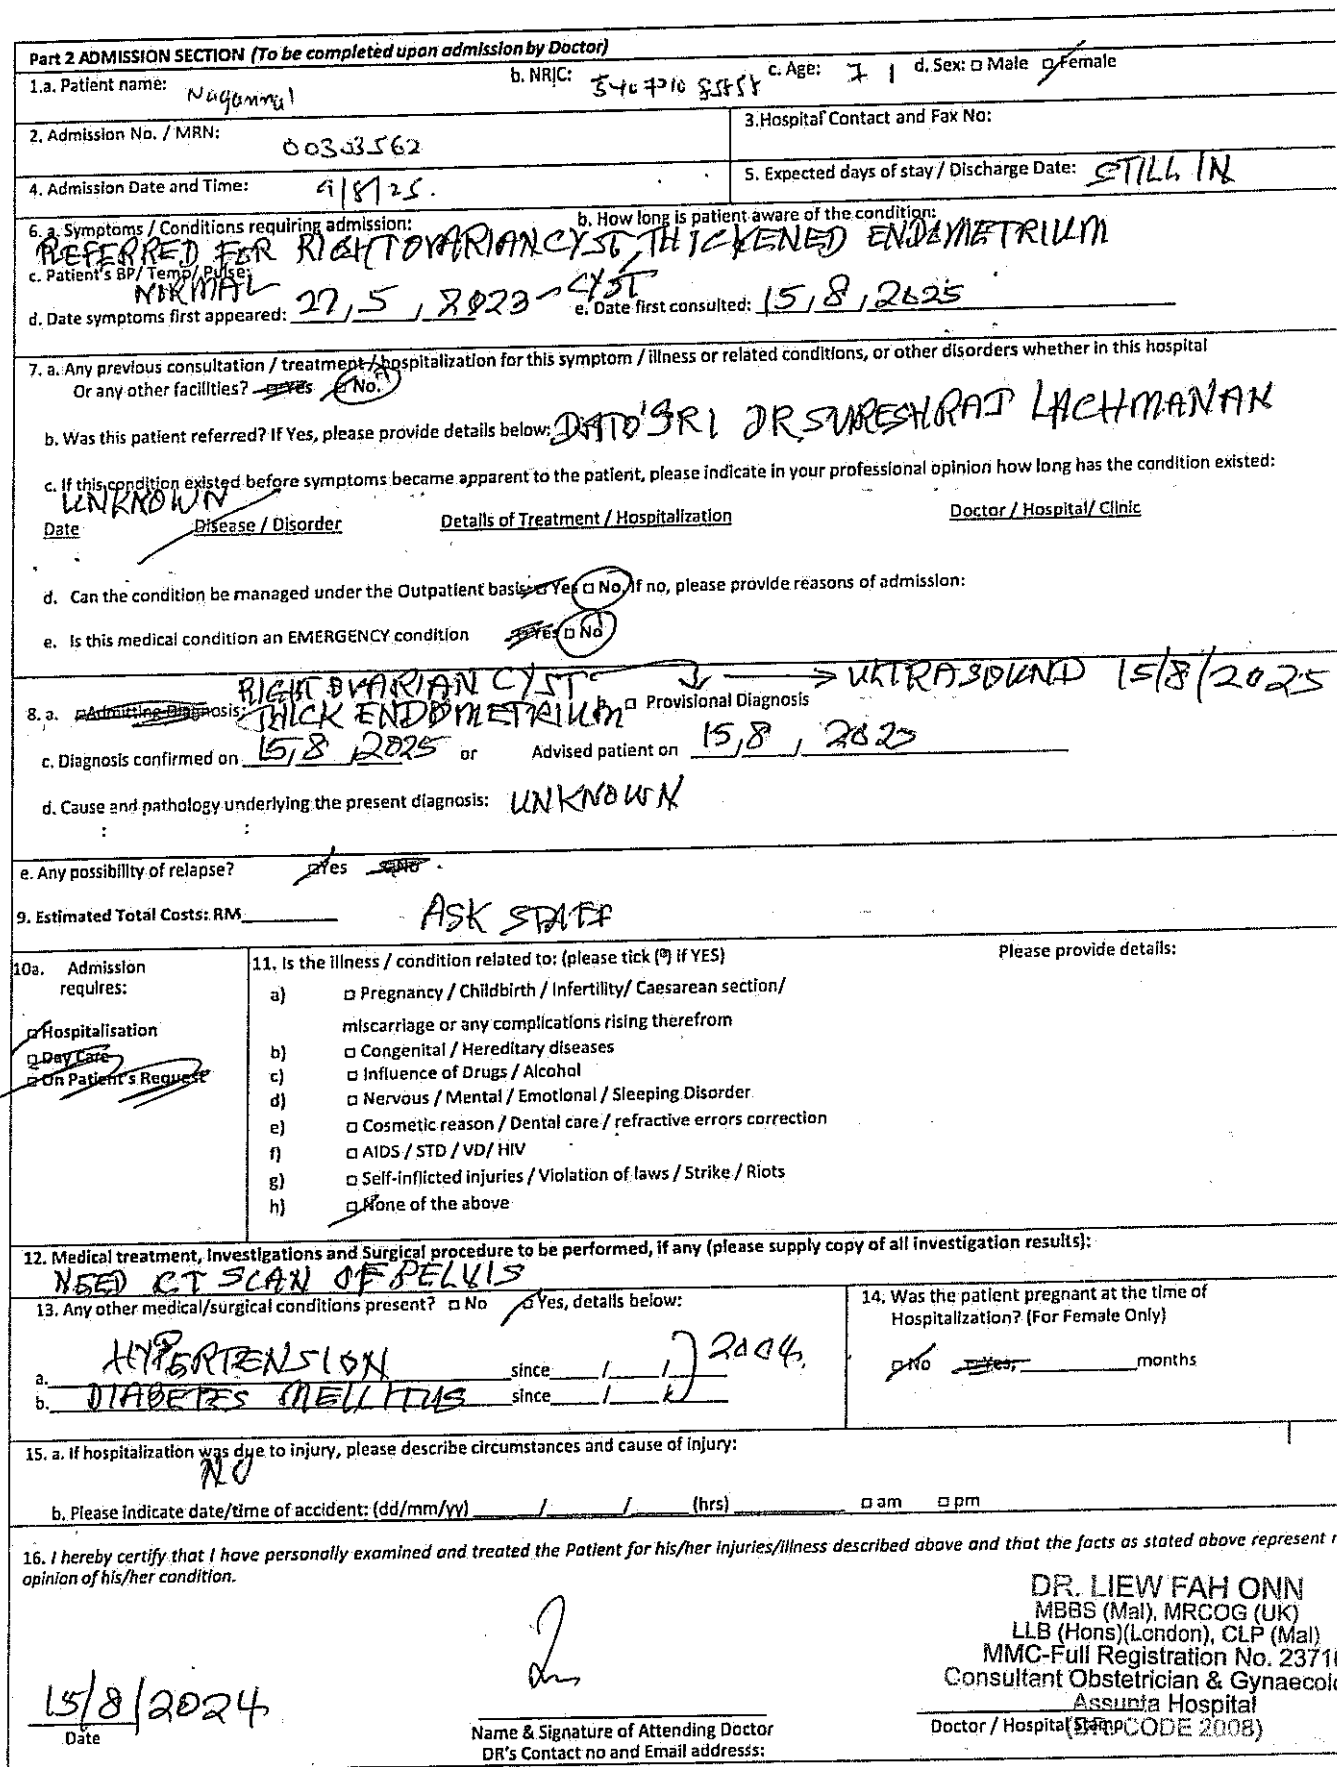 Part 2 ADMISSION SECTION (To be completed upon admission by Doctor)
1.a. Patient name: b. NRIC: c. Age: 71 d. Sex: □ Male □ Female
2. Admission No. / MRN: 00303562 3.Hospital Contact and Fax No:
4. Admission Date and Time: 9/8/25. 5. Expected days of stay / Discharge Date: STILL IN
6. a. Symptoms / Conditions requiring admission: b. How long is patient aware of the condition:
REFERRED FOR RIGHT OVARIAN CYST, THICKENED ENDOMETRIUM
c. Patient's BP/ Temp/ Pulse:
NORMAL
d. Date symptoms first appeared: 27, 5, 2023 - CYST e. Date first consulted: 15, 8, 2025
7. a. Any previous consultation / treatment / hospitalization for this symptom / illness or related conditions, or other disorders whether in this hospital
Or any other facilities? □ Yes □ No.
b. Was this patient referred? If Yes, please provide details below: DATO' SRI DR SURESH RAJ LACHMANAN
c. If this condition existed before symptoms became apparent to the patient, please indicate in your professional opinion how long has the condition existed:
UNKNOWN
Date Disease / Disorder Details of Treatment / Hospitalization Doctor / Hospital/ Clinic
d. Can the condition be managed under the Outpatient basis: □ Yes □ No, If no, please provide reasons of admission:
e. Is this medical condition an EMERGENCY condition □ Yes □ No
RIGHT OVARIAN CYST → ULTRASOUND 15/8/2025
8. a. □ Admitting Diagnosis: THICK ENDOMETRIUM b. □ Provisional Diagnosis
c. Diagnosis confirmed on 15, 8, 2025 or Advised patient on 15, 8, 2025
d. Cause and pathology underlying the present diagnosis: UNKNOWN
: :
e. Any possibility of relapse? □ Yes □ No
9. Estimated Total Costs: RM ASK STAFF
10a. Admission requires:
□ Hospitalisation
□ Day Care
□ On Patient's Request
11. Is the illness / condition related to: (please tick (a) if YES) Please provide details:
a) □ Pregnancy / Childbirth / Infertility/ Caesarean section/
miscarriage or any complications rising therefrom
b) □ Congenital / Hereditary diseases
c) □ Influence of Drugs / Alcohol
d) □ Nervous / Mental / Emotional / Sleeping Disorder
e) □ Cosmetic reason / Dental care / refractive errors correction
f) □ AIDS / STD / VD/ HIV
g) □ Self-inflicted injuries / Violation of laws / Strike / Riots
h) □ None of the above
12. Medical treatment, Investigations and Surgical procedure to be performed, if any (please supply copy of all investigation results):
NEED CT SCAN OF PELVIS
13. Any other medical/surgical conditions present? □ No □ Yes, details below:
a. HYPERTENSION since / / } 2004
b. DIABETES MELLITUS since / /
14. Was the patient pregnant at the time of
Hospitalization? (For Female Only)
□ No □ Yes, months
15. a. If hospitalization was due to injury, please describe circumstances and cause of injury:
NO
b. Please indicate date/time of accident: (dd/mm/yy) / / (hrs) □ am □ pm
16. I hereby certify that I have personally examined and treated the Patient for his/her injuries/illness described above and that the facts as stated above represent
opinion of his/her condition.
DR. LIEW FAH ONN
MBBS (Mal), MRCOG (UK)
LLB (Hons)(London), CLP (Mal)
MMC-Full Registration No. 2371
Consultant Obstetrician & Gynaecolo
Assunta Hospital
(DR CODE 2008)
15/8/2024
Date
Name & Signature of Attending Doctor
DR's Contact no and Email addresss:
Doctor / Hospital Stamp